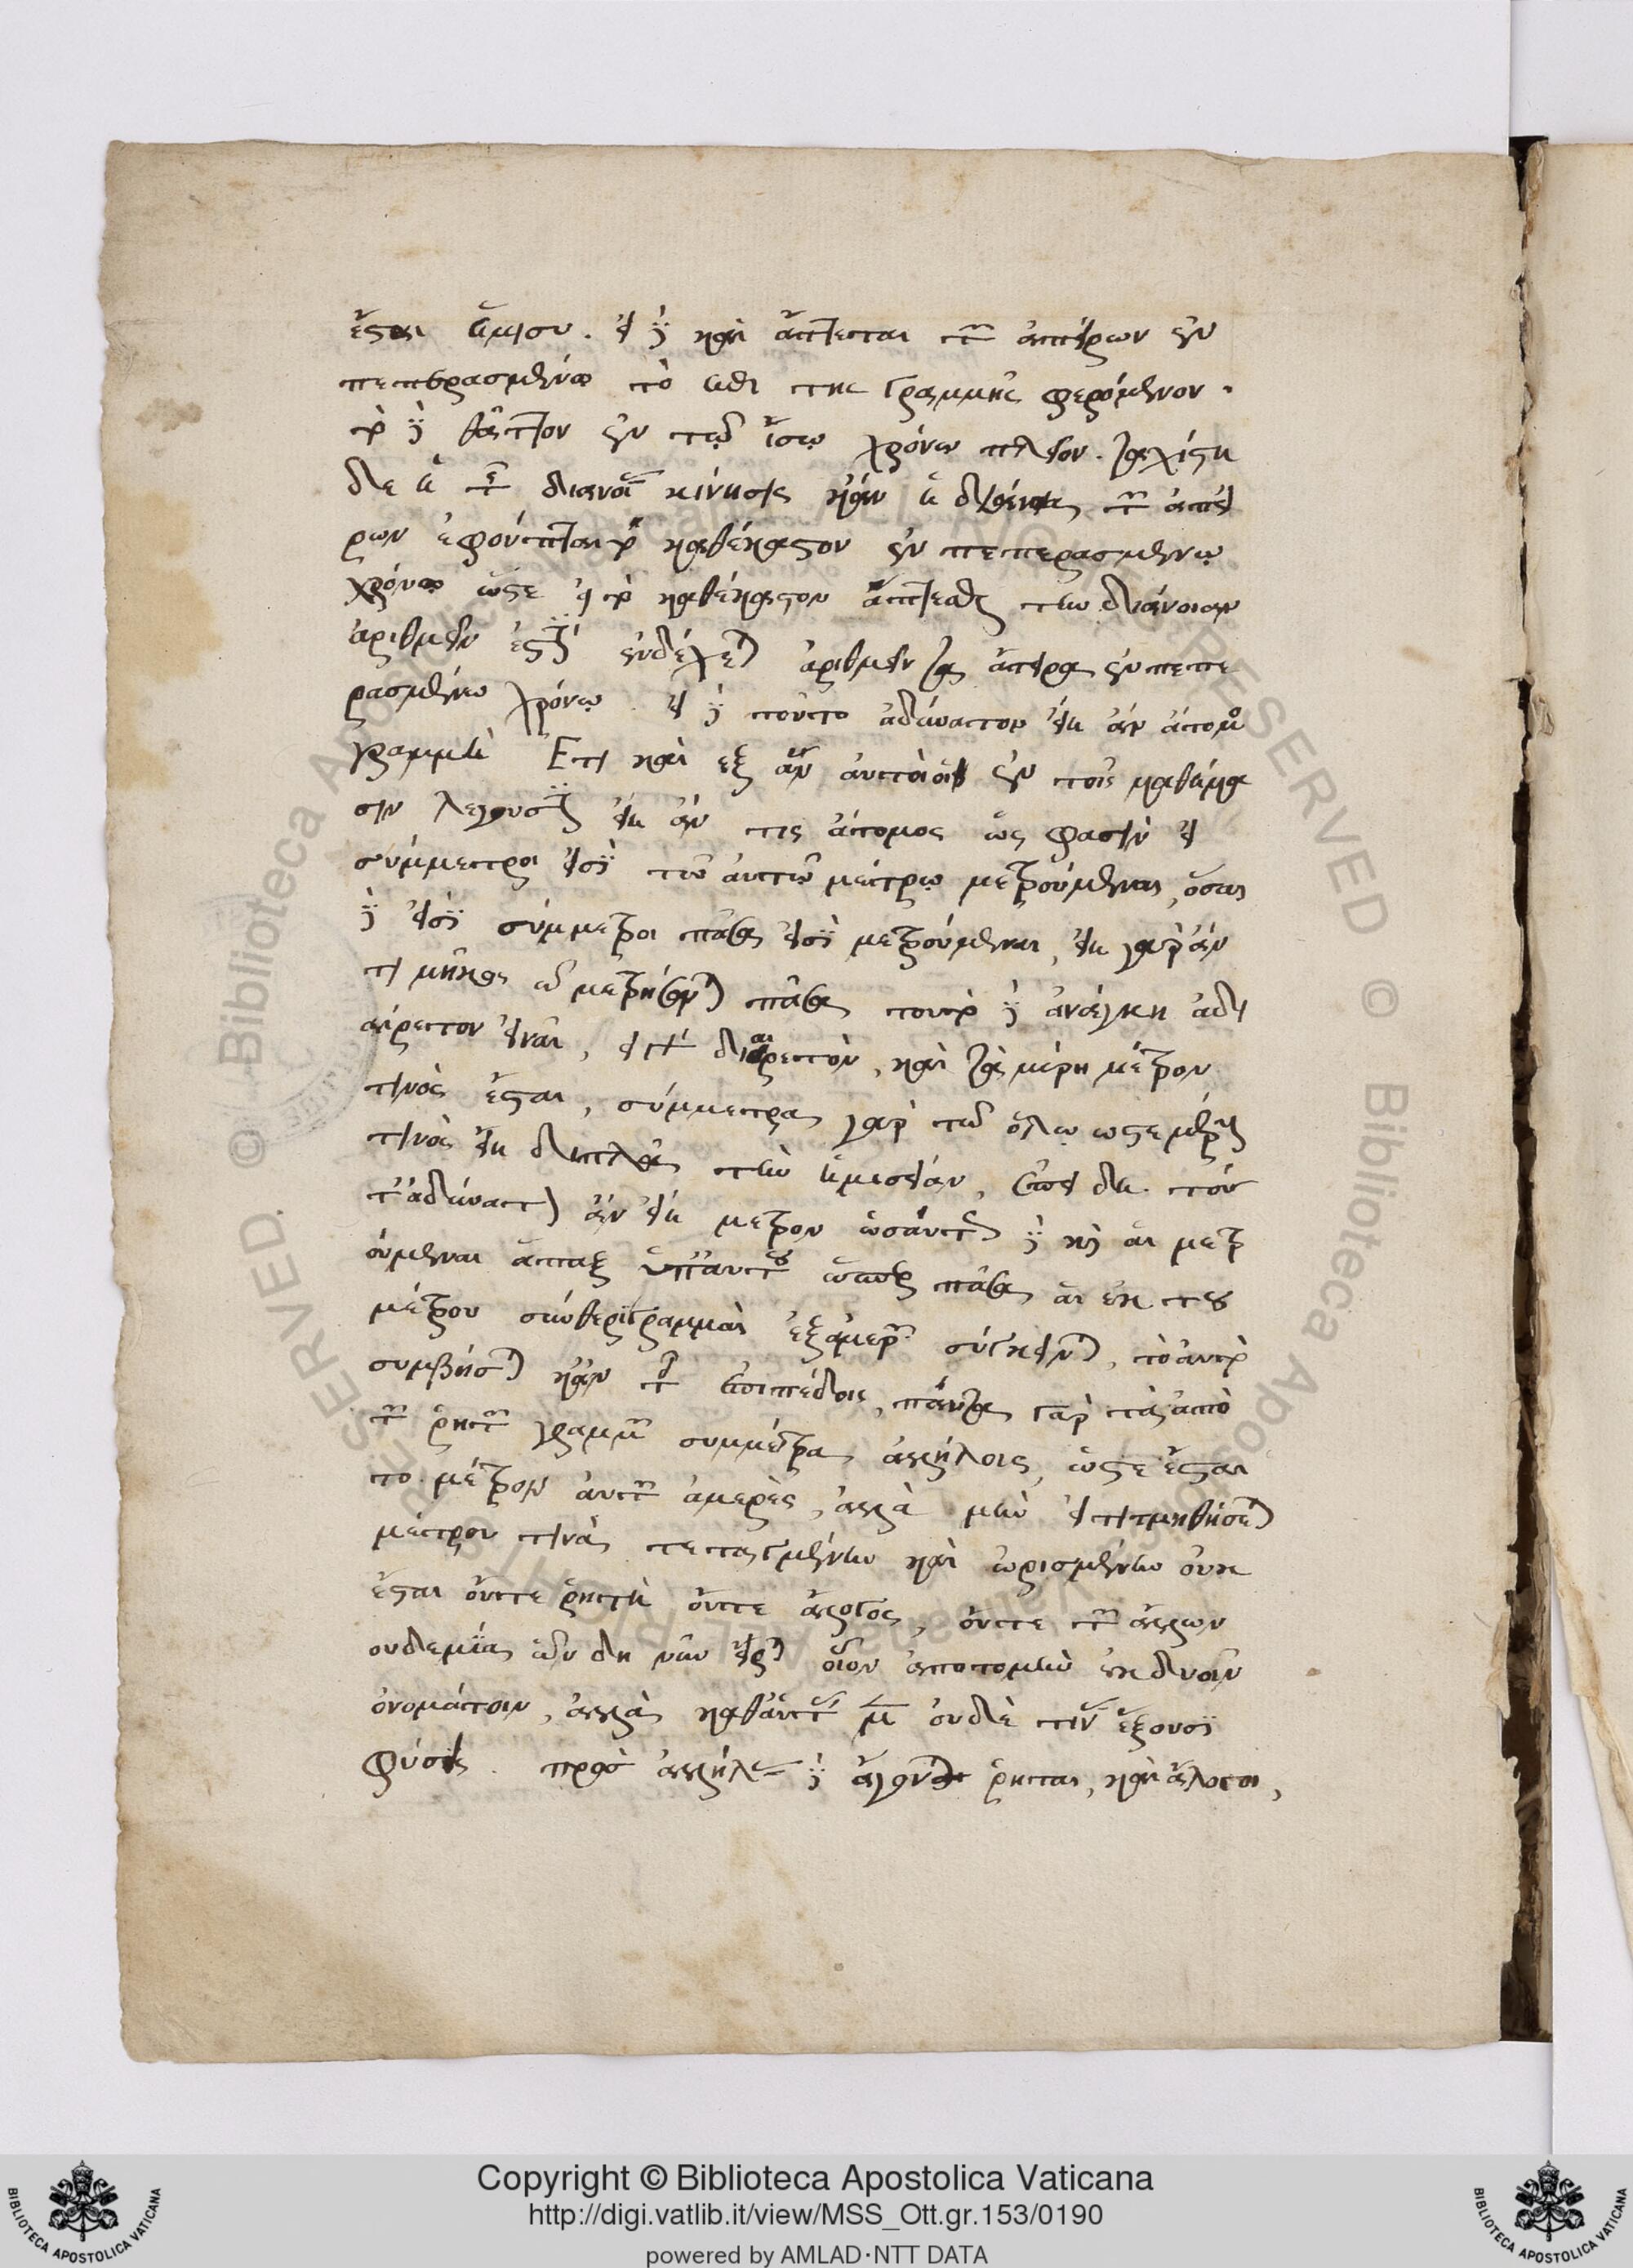 ἔσται ἥμισυ. εἰ δὲ καὶ ἅπτεται τῶν ἀπείρων ἐν
πεπερασμένω τὸ ἐπὶ της γραμμῆς φερόμενον.
τὸ δὲ θᾶττον ἐν τῷ ἴσῳ χρόνω πλεῖον. ταχίστη
δε ἡ τῆς διανοίας κίνησις κἂν ἡ διάνοια τῶν ἀπεί
ρων ἐφάπτοιτο καθέκαστον ἐν πεπερασμένῳ
χρόνω ὥστε εἰ τὸ καθέκαστον ἅπτεσθαι τὴν διάνοιαν
ἀριθμεῖν ἐστὶν ἐνδέχεται ἀριθμεῖν τὰ ἄπειρα ἐν πεπε
ρασμένω χρόνῳ. εἰ δὲ τοῦτο ἀδύνατον εἴη ἄν ἄτομος
γραμμὴ Ετι καὶ ἐξ ὧν αὐτοὶ οἱ ἐν τοῖς μαθήμα
σιν λέγουσιν εἴη ἄν τις ἄτομος ὥς φασὶν εἰ
σύμμετροι εἰσὶ τῶ αὐτῶ μέτρῳ μετρούμεναι, ὅσαι
δὲ εἰσὶ σύμμετροι πᾶσαι εἰσὶ μετρούμεναι, εἴη γαρ ἄν
τι μῆκος ὧ μετρηθήσονται πᾶσαι τοῦτο δὲ ἀνάγκη ἀδι
αίρετον εἶναι, εἰ γὰρ διαιρετὸν, καὶ τὰ μέρη μέτρου
τινὸς ἔσται, σύμμετρα γαρ τῶ ὅλῳ ὡστε μέρους
τινὸς εἴη διπλῆ τὴν ἡμίσειαν, ἐπεὶ δὲ τοῦ
τ᾽ἀδύνατον ἄν εἴη μετρον ὡσαύτως δὲ καὶ αἱ μετρ
ούμεναι ἅπαξ ὑπ᾽αὐτοῦ ὥσπερ πᾶσαι αἱ ἐκ του
μέτρου σύνθετοι γραμμαὶ ἐξ ἀμερῶν σύγκεινται, τὸ αὐτὸ
συμβήσεται κἂν τοῖς ἐπιπέδοις, πάντα γαρ τὰ ἀπὸ
τῶν ῥητῶν γραμμῶν συμμετρα ἀλλήλοις, ὥστε ἔσται
το μέτρον αὐτῶν ἀμερὲς, ἀλλὰ μὴν εἴ τι τμηθήσεται
μέτρον τινὰ τεταγμένην καὶ ὡρισμένην οὐκ
ἔσται οὔτε ῥητὴ οὔτε ἄλογος, οὔτε τῶν ἄλλων
ουδεμία ὧν δὴ νῦν εἴρηται οἷον ἀποτομὴν ἐκ δυοῖν
ὀνομάτοιν, ἀλλὰ καθ᾽αὑτὰς μὲν οὐδὲ τινὰς ἕξουσι
φύσεις. πρὸς ἀλλήλας δὲ ἔσονται ῥηται, καὶ ἄλογοι,
Copyright © Biblioteca Apostolica Vaticana
http://digi.vatlib.it/view/MSS_Ott.gr.153/0190
powered by AMLAD·NTT DATA